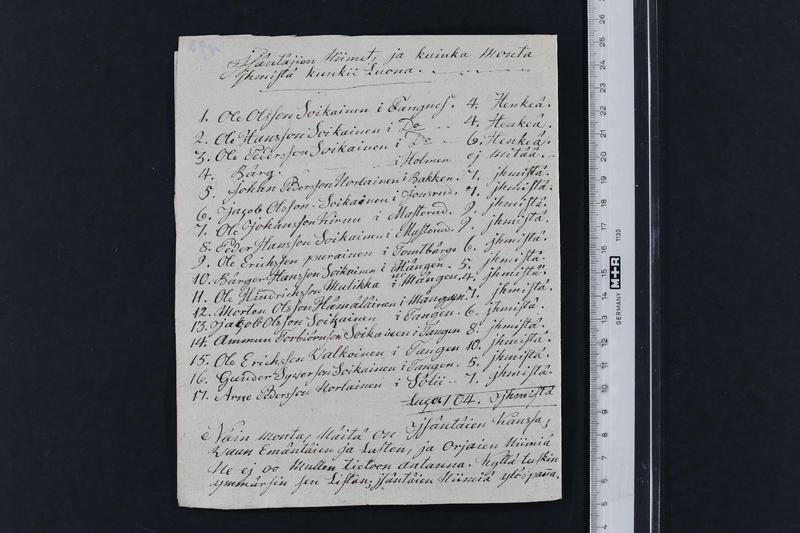 Isäntäjien Niimet, ja kuinka Monta
jhmistä kunkii Luona.
1. Ole Olsson Soikainen i Tangnes. 4. Henkeä.
2. Ole Hansson Soikainen i Do 4. Henkeä.
3. Ole Pedersson Soikainen i Do 6. Henkeä.
4. Bärg. i Holmen ej mitää.
5. Johan Pedersson Norlainen i Bakken. 7. jhmistä.
6. Jacob Olsson Soikainen i Jonsrud. 7. jhmistä.
7. Ole Johansson Kirnu i Masterud. 9. jhmistä.
8. Peder Hansson Soikainen i Masterud. 9. jhmistä.
9. Ole Erichsen purainen i Tomtbärge 6. jhmistä.
10. Bärger Hansson Soikainen i Mången. 5. jhmistä.
11. Ole Hindrichsson Mulikka i Mången. 4. jhmistä.
12. Morten Olsson Hämäläinen i Mången. 7. jhmistä.
13. Jakob Olsson Soikainen i Tangen. 6. jhmistä.
14. Ammun Torbiörnson Soikainen i Tangen 8. jhmistä.
15. Ole Erichsson Valkoinen i Tangen 10. jhmistä.
16. Gunder Sywerson Soikainen i Tangen. 5. jhmistä.
17. Arne Pedersson Norlainen i Sätii 7. jhmistä.
104. jhmistä
Näin monta, Näitä on Isäntäien Kanssa,
Waan Emäntäien ja Lasten, ja Orjaien Niimiä
He ej oo Mullen tietoon antanna. Kyllä tuskin
ymmärsin sen Listan, jsäntäien Niimiä ylös panna.
10
11
12
13
14
15
16
17
18
19
20
21
22
23
24
25
26
1130
M+R
GERMANY